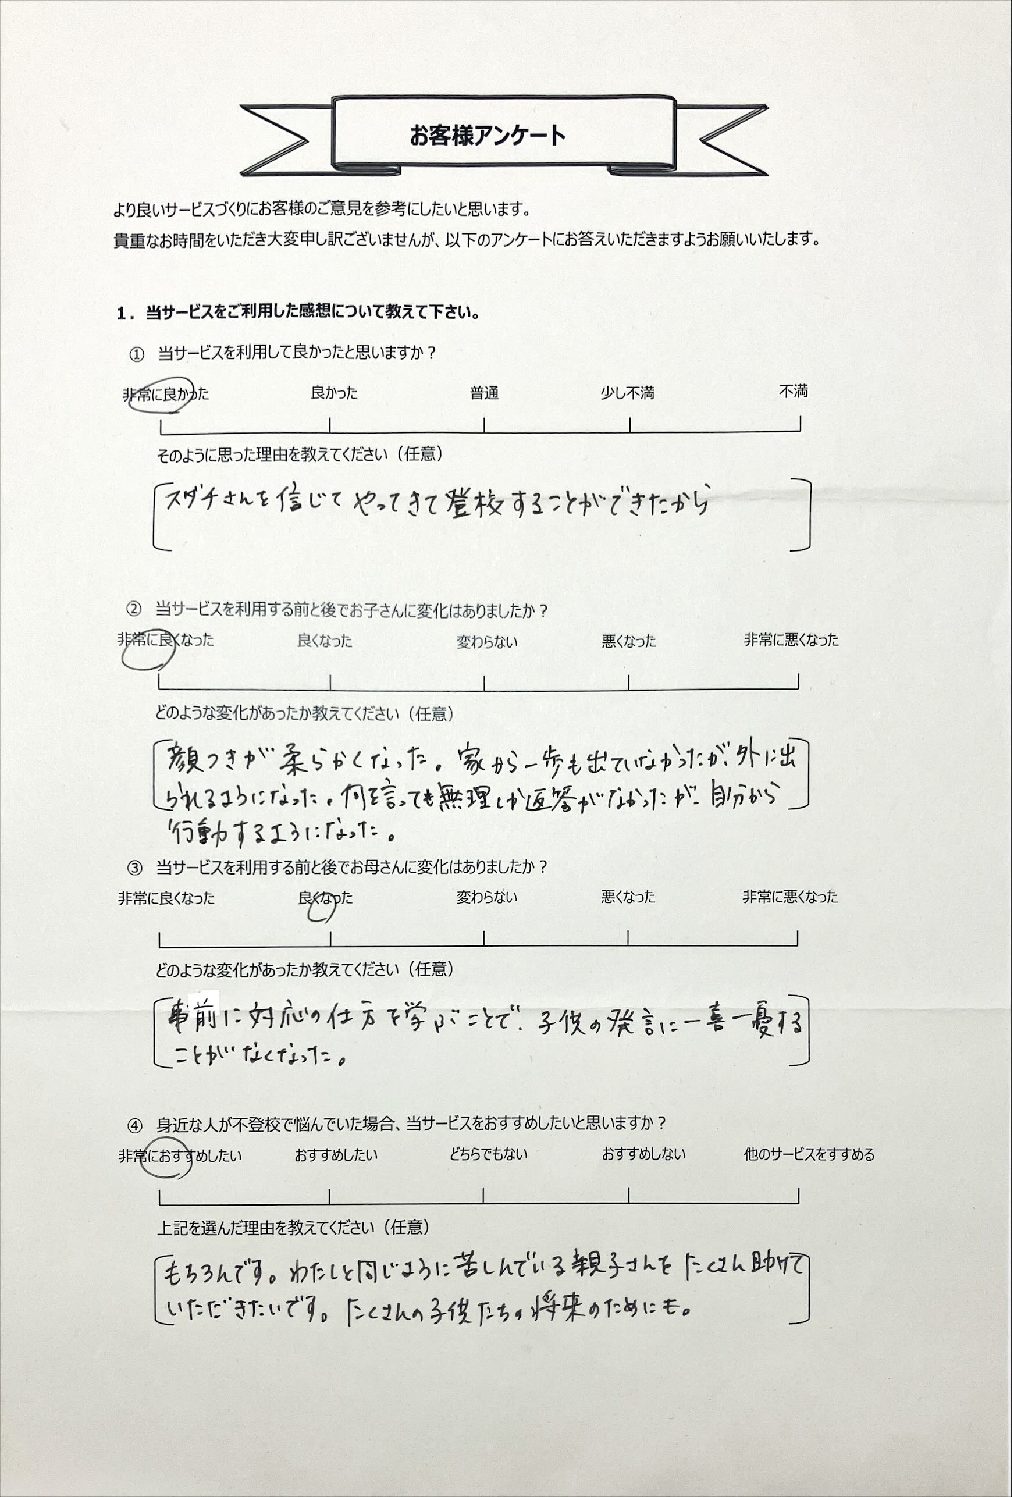 お客様アンケート
より良いサービスづくりにお客様のご意見を参考にしたいと思います。
貴重なお時間をいただき大変申し訳ございませんが、以下のアンケートにお答えいただきますようお願いいたします。
1．当サービスをご利用した感想について教えて下さい。
① 当サービスを利用して良かったと思いますか？
非常に良かった 良かった 普通 少し不満 不満
そのように思った理由を教えてください（任意）
スダチさんを信じてやってきて登校することができたから
② 当サービスを利用する前と後でお子さんに変化はありましたか？
非常に良くなった 良くなった 変わらない 悪くなった 非常に悪くなった
どのような変化があったか教えてください（任意）
顔つきが柔らかくなった。家から一歩も出ていなかったが、外に出
られるようになった。何を言っても無理しか返答がなかったが、自分から
行動するようになった。
③ 当サービスを利用する前と後でお母さんに変化はありましたか？
非常に良くなった 良くなった 変わらない 悪くなった 非常に悪くなった
どのような変化があったか教えてください（任意）
事前に対応の仕方を学ぶことで、子供の発言に一喜一憂する
ことがなくなった。
④ 身近な人が不登校で悩んでいた場合、当サービスをおすすめしたいと思いますか？
非常におすすめしたい おすすめしたい どちらでもない おすすめしない 他のサービスをすすめる
上記を選んだ理由を教えてください（任意）
もちろんです。わたしと同じように苦しんでいる親子さんをたくさん助けて
いただきたいです。たくさんの子供たちの将来のためにも。